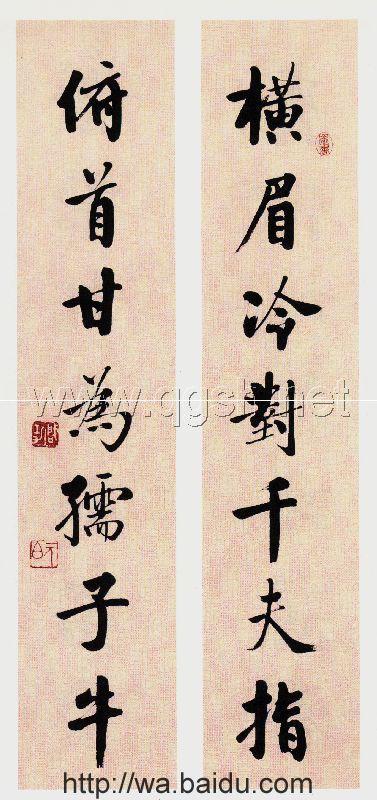 橫眉冷對千夫指
俯首甘為孺子牛
www.qgsh.net
http://wa.baidu.com